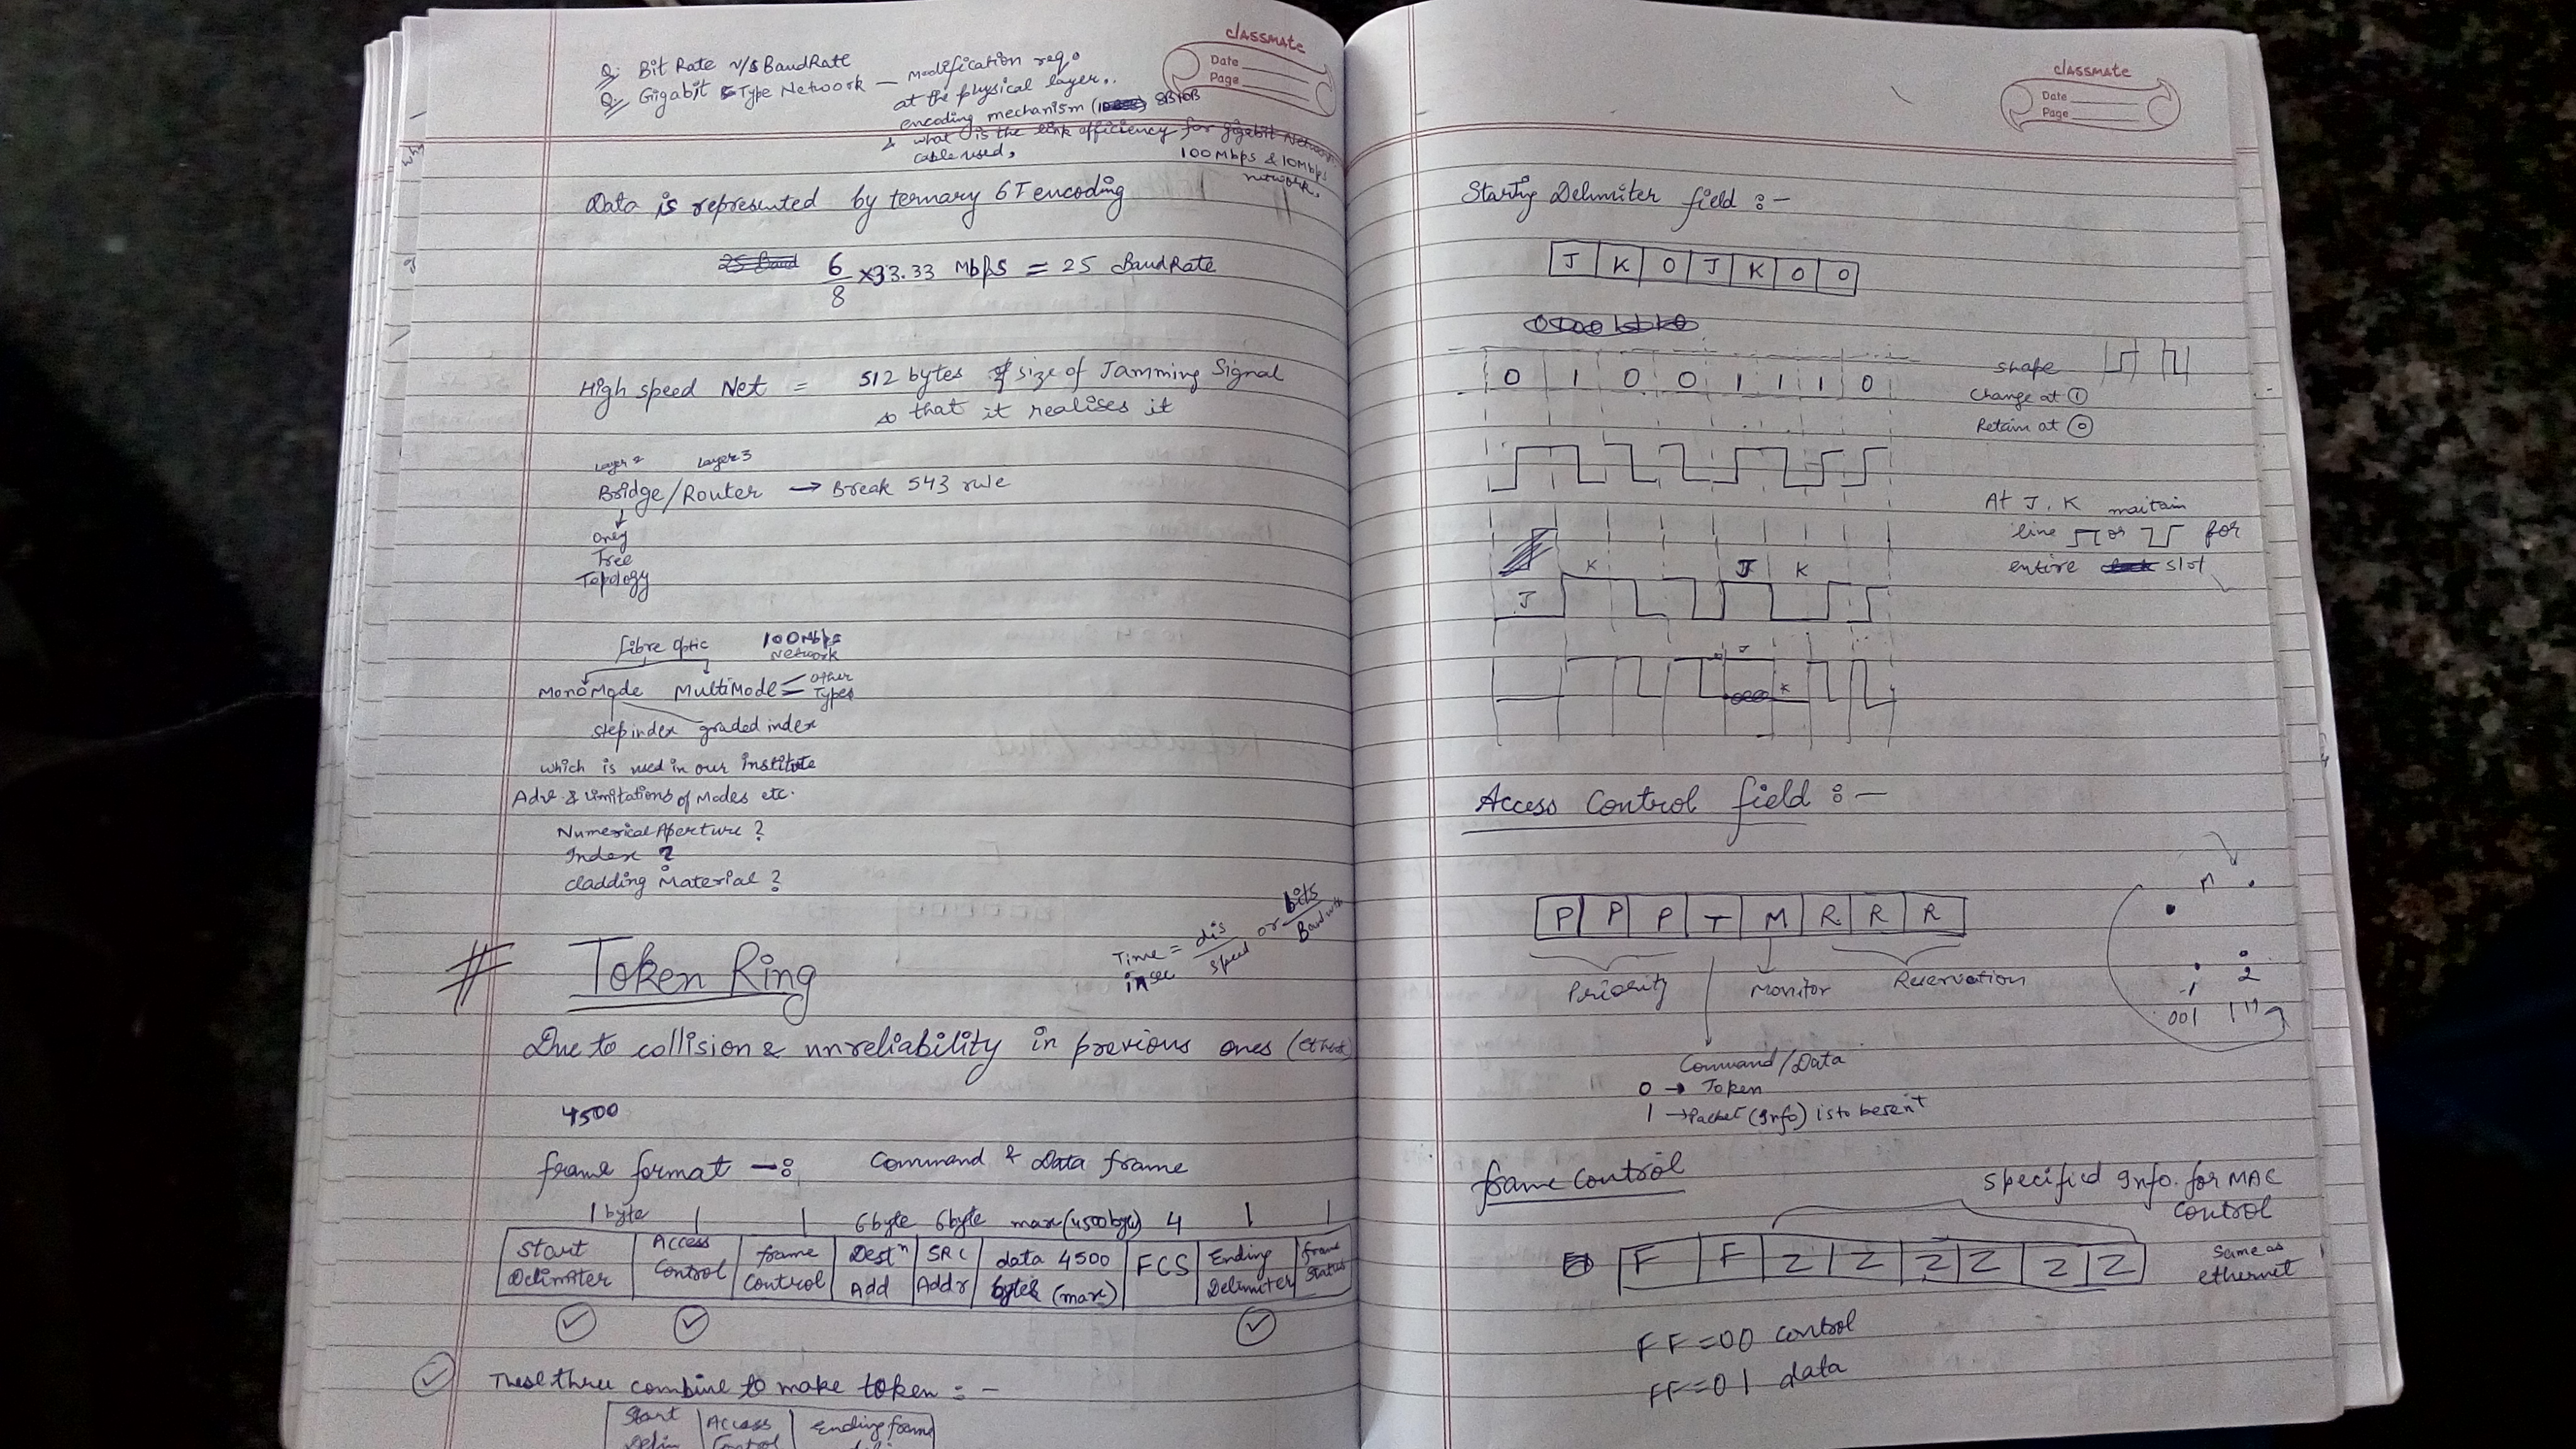 classmate
Date
Page
Q: Bit Rate v/s BaudRate
Q: Gigabit Type Network — Modification req.
at the physical layer..
encoding mechanism ( 8B10B
& what is the link efficiency for gigabit Network
cable used,
100Mbps & 10Mbps
network.
Data is represented by ternary 6T encoding
6/8 ×33.33 Mbps = 25 BaudRate
High speed Net = 512 bytes of size of Jamming Signal
so that it realises it
Layer 2 Layer 3
Bridge/Router → Break 543 rule
Only
Tree
Topology
fibre Optic 100Mbps
Network
MonoMode MultiMode other
Types
step index graded index
which is used in our institute
Adv. & limitations of Modes etc.
Numerical Aperture ?
Index ?
cladding Material ?
# Token Ring
Time = dis/speed or bits/Bandwith
in sec
Due to collision & unreliability in previous ones
4500
frame format -: Command & Data frame
1 byte 1 1 6byte 6byte max(4500byte) 4 1 1
Start Delimiter Access Control frame Control Destn Add SRC Addr data 4500 bytes (max) FCS Ending Delimiter frame status
These three combine to make token : -
Start Access Ending frame
Delim Control
classmate
Date
Page
Starting Delimiter field :-
J K 0 J K 0 0
0 1 0 0 1 1 1 0
shape
Change at 1
Retain at 0
At J, K maitain
line or for
entire slot
K J K
J
J
K
Access Control field :-
P P P T M R R R
Priority Monitor Reservation
Command/Data
0 → Token
1 → Packet (Info) is to be sent
M
1 2
001 111
frame Control
specified Info. for MAC
Control
F F Z Z Z Z Z Z
Same as
ethernet
FF=00 control
FF=01 data